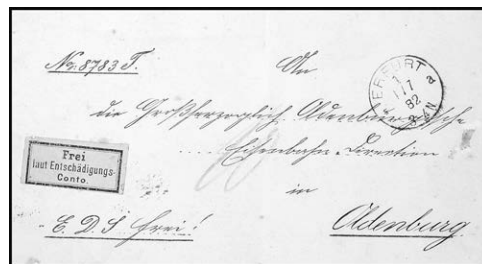 No 8783 T.
An
ERFURT
1 1/7 a
82
3-4 N
die Großherzoglich Oldenburgische
Eisenbahn-Direction
Frei
laut Entschädigungs-
Conto.
in
E. D. S. frei!
Oldenburg